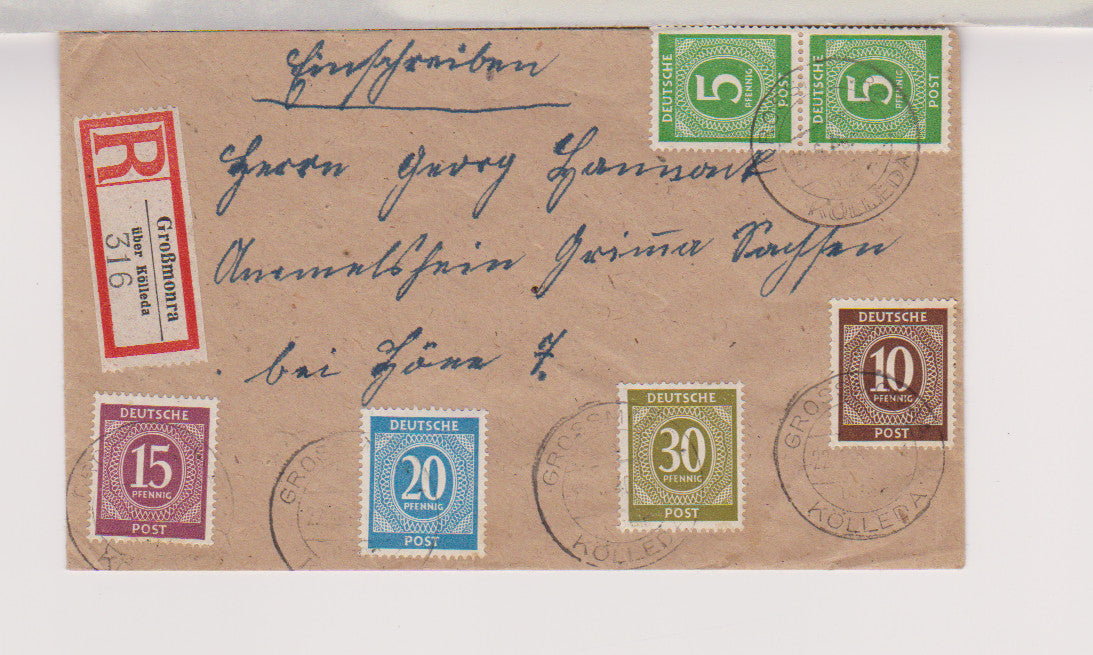 Einschreiben
Herrn Georg Hannack
Ammelshein Grimma Sachsen
bei Höne 7.
R
Großmonra
über Kölleda
316
DEUTSCHE
5
PFENNIG
POST
DEUTSCHE
5
PFENNIG
POST
KÖLLEDA
DEUTSCHE
10
PFENNIG
POST
GROSS
KÖLLEDA
DEUTSCHE
15
PFENNIG
POST
DEUTSCHE
20
PFENNIG
POST
GROSS
DEUTSCHE
30
PFENNIG
POST
GROSSM
KÖLLEDA